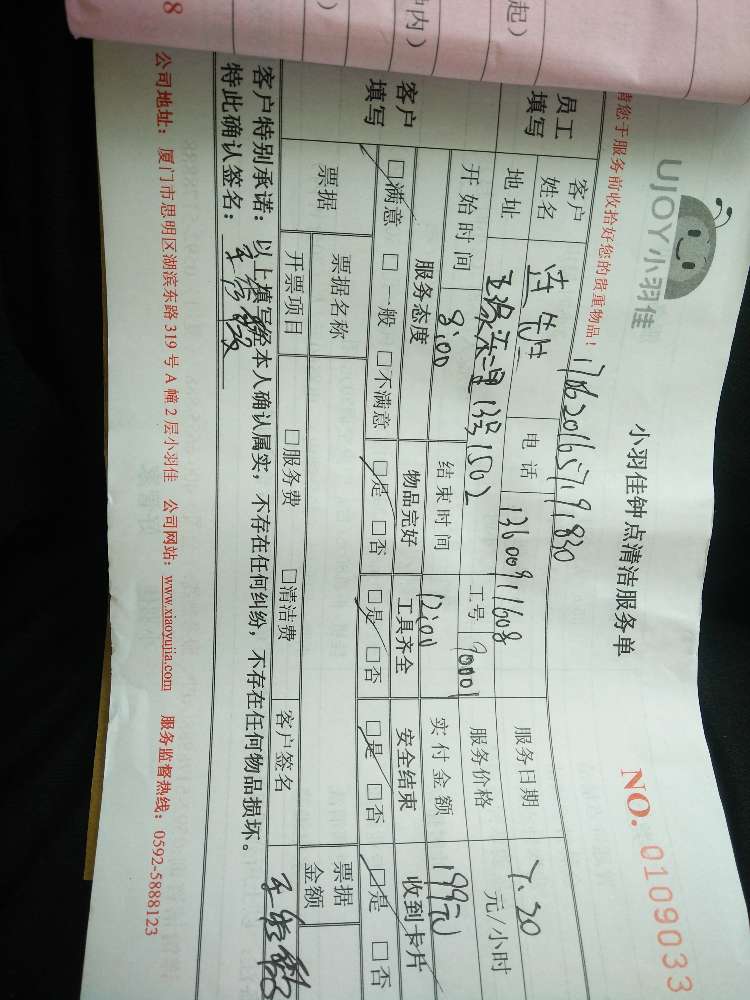 起）
钟内）
）
8
UJOY小羽佳
小羽佳钟点清洁服务单
NO. 0109033
请您于服务前收拾好您的贵重物品！
员工填写
客户姓名
电话
13600911608
服务日期
7.20
地址
13号1502
工号
90001
服务价格
元/小时
开始时间
8:00
结束时间
12:00
实付金额
199元
客户填写
服务态度
物品完好
工具齐全
安全结束
收到卡片
□满意 □一般 □不满意
□是 □否
□是 □否
□是 □否
□是 □否
票据
票据名称
票据金额
开票项目
□服务费 □清洁费
客户签名
客户特别承诺：以上填写经本人确认属实，不存在任何纠纷，不存在任何物品损坏。
特此确认签名：
公司地址：厦门市思明区湖滨东路319号A幢2层小羽佳 公司网站：www.xiaoyujia.com 服务监督热线：0592-5888123